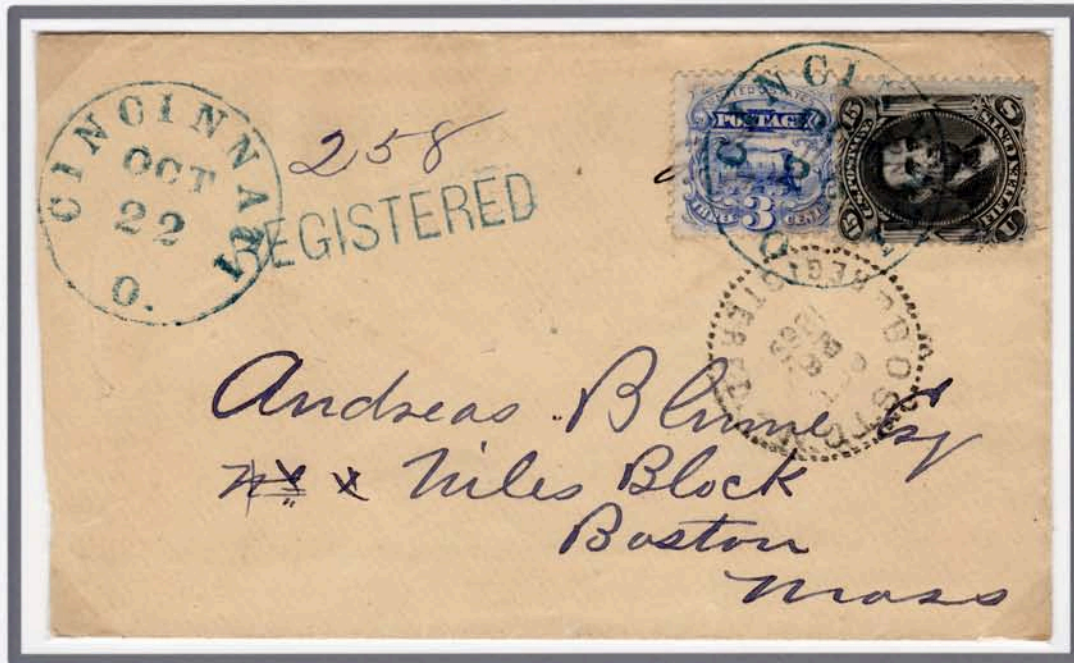 CINCINNATI
OCT
22
O.
258
REGISTERED
UNITED STATES
POSTAGE
THREE 3 CENTS
U.S. POSTAGE
15 15
FIFTEEN CENTS
U S
CINCI
O
BOSTON
REGISTERED
Andreas Blume Esq
Niles Block
Boston
Mass